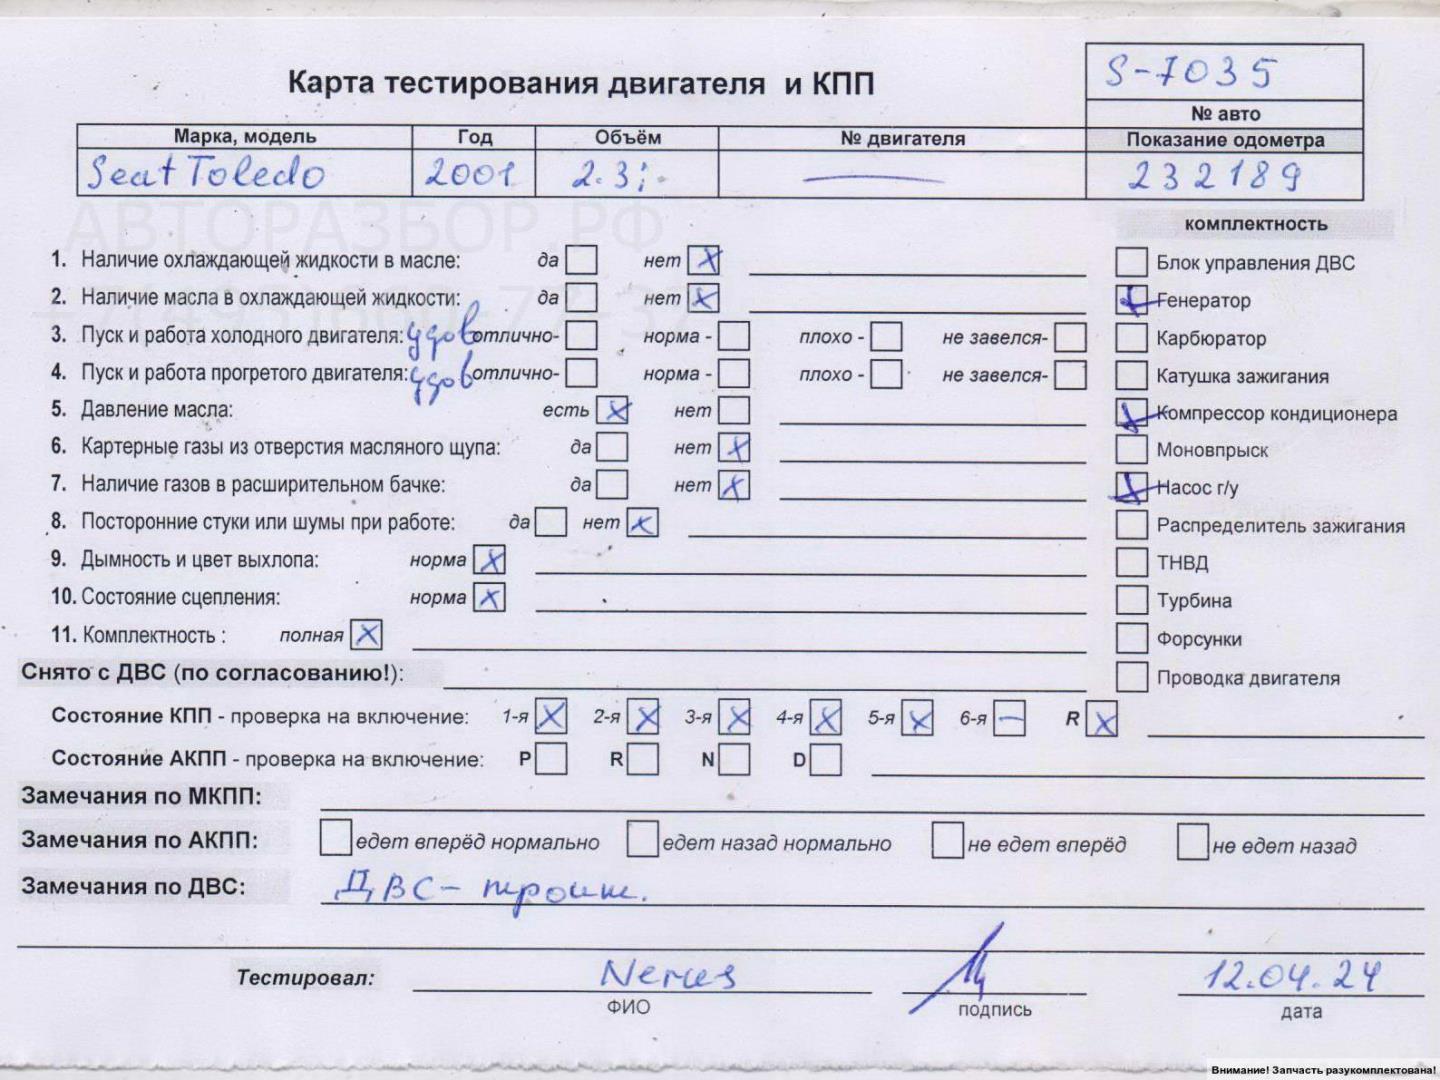 S-7035
Карта тестирования двигателя и КПП
№ авто
Марка, модель Год Объём № двигателя Показание одометра
Seat Toledo 2001 2.3i 232189
АВТОРАЗБОР.РФ
комплектность
1. Наличие охлаждающей жидкости в масле: да нет X Блок управления ДВС
2. Наличие масла в охлаждающей жидкости: да нет X X Генератор
3. Пуск и работа холодного двигателя: удов отлично- норма - плохо - не завелся- Карбюратор
4. Пуск и работа прогретого двигателя: удов отлично- норма - плохо - не завелся- Катушка зажигания
5. Давление масла: есть X нет X Компрессор кондиционера
6. Картерные газы из отверстия масляного щупа: да нет X Моновпрыск
7. Наличие газов в расширительном бачке: да нет X X Насос г/у
8. Посторонние стуки или шумы при работе: да нет X Распределитель зажигания
9. Дымность и цвет выхлопа: норма X ТНВД
10. Состояние сцепления: норма X Турбина
11. Комплектность : полная X Форсунки
Снято с ДВС (по согласованию!): Проводка двигателя
Состояние КПП - проверка на включение: 1-я X 2-я X 3-я X 4-я X 5-я X 6-я — R X
Состояние АКПП - проверка на включение: P R N D
Замечания по МКПП:
Замечания по АКПП: едет вперёд нормально едет назад нормально не едет вперёд не едет назад
Замечания по ДВС: ДВС - троит.
Тестировал: 12.04.24
ФИО подпись дата
Внимание! Запчасть разукомплектована!